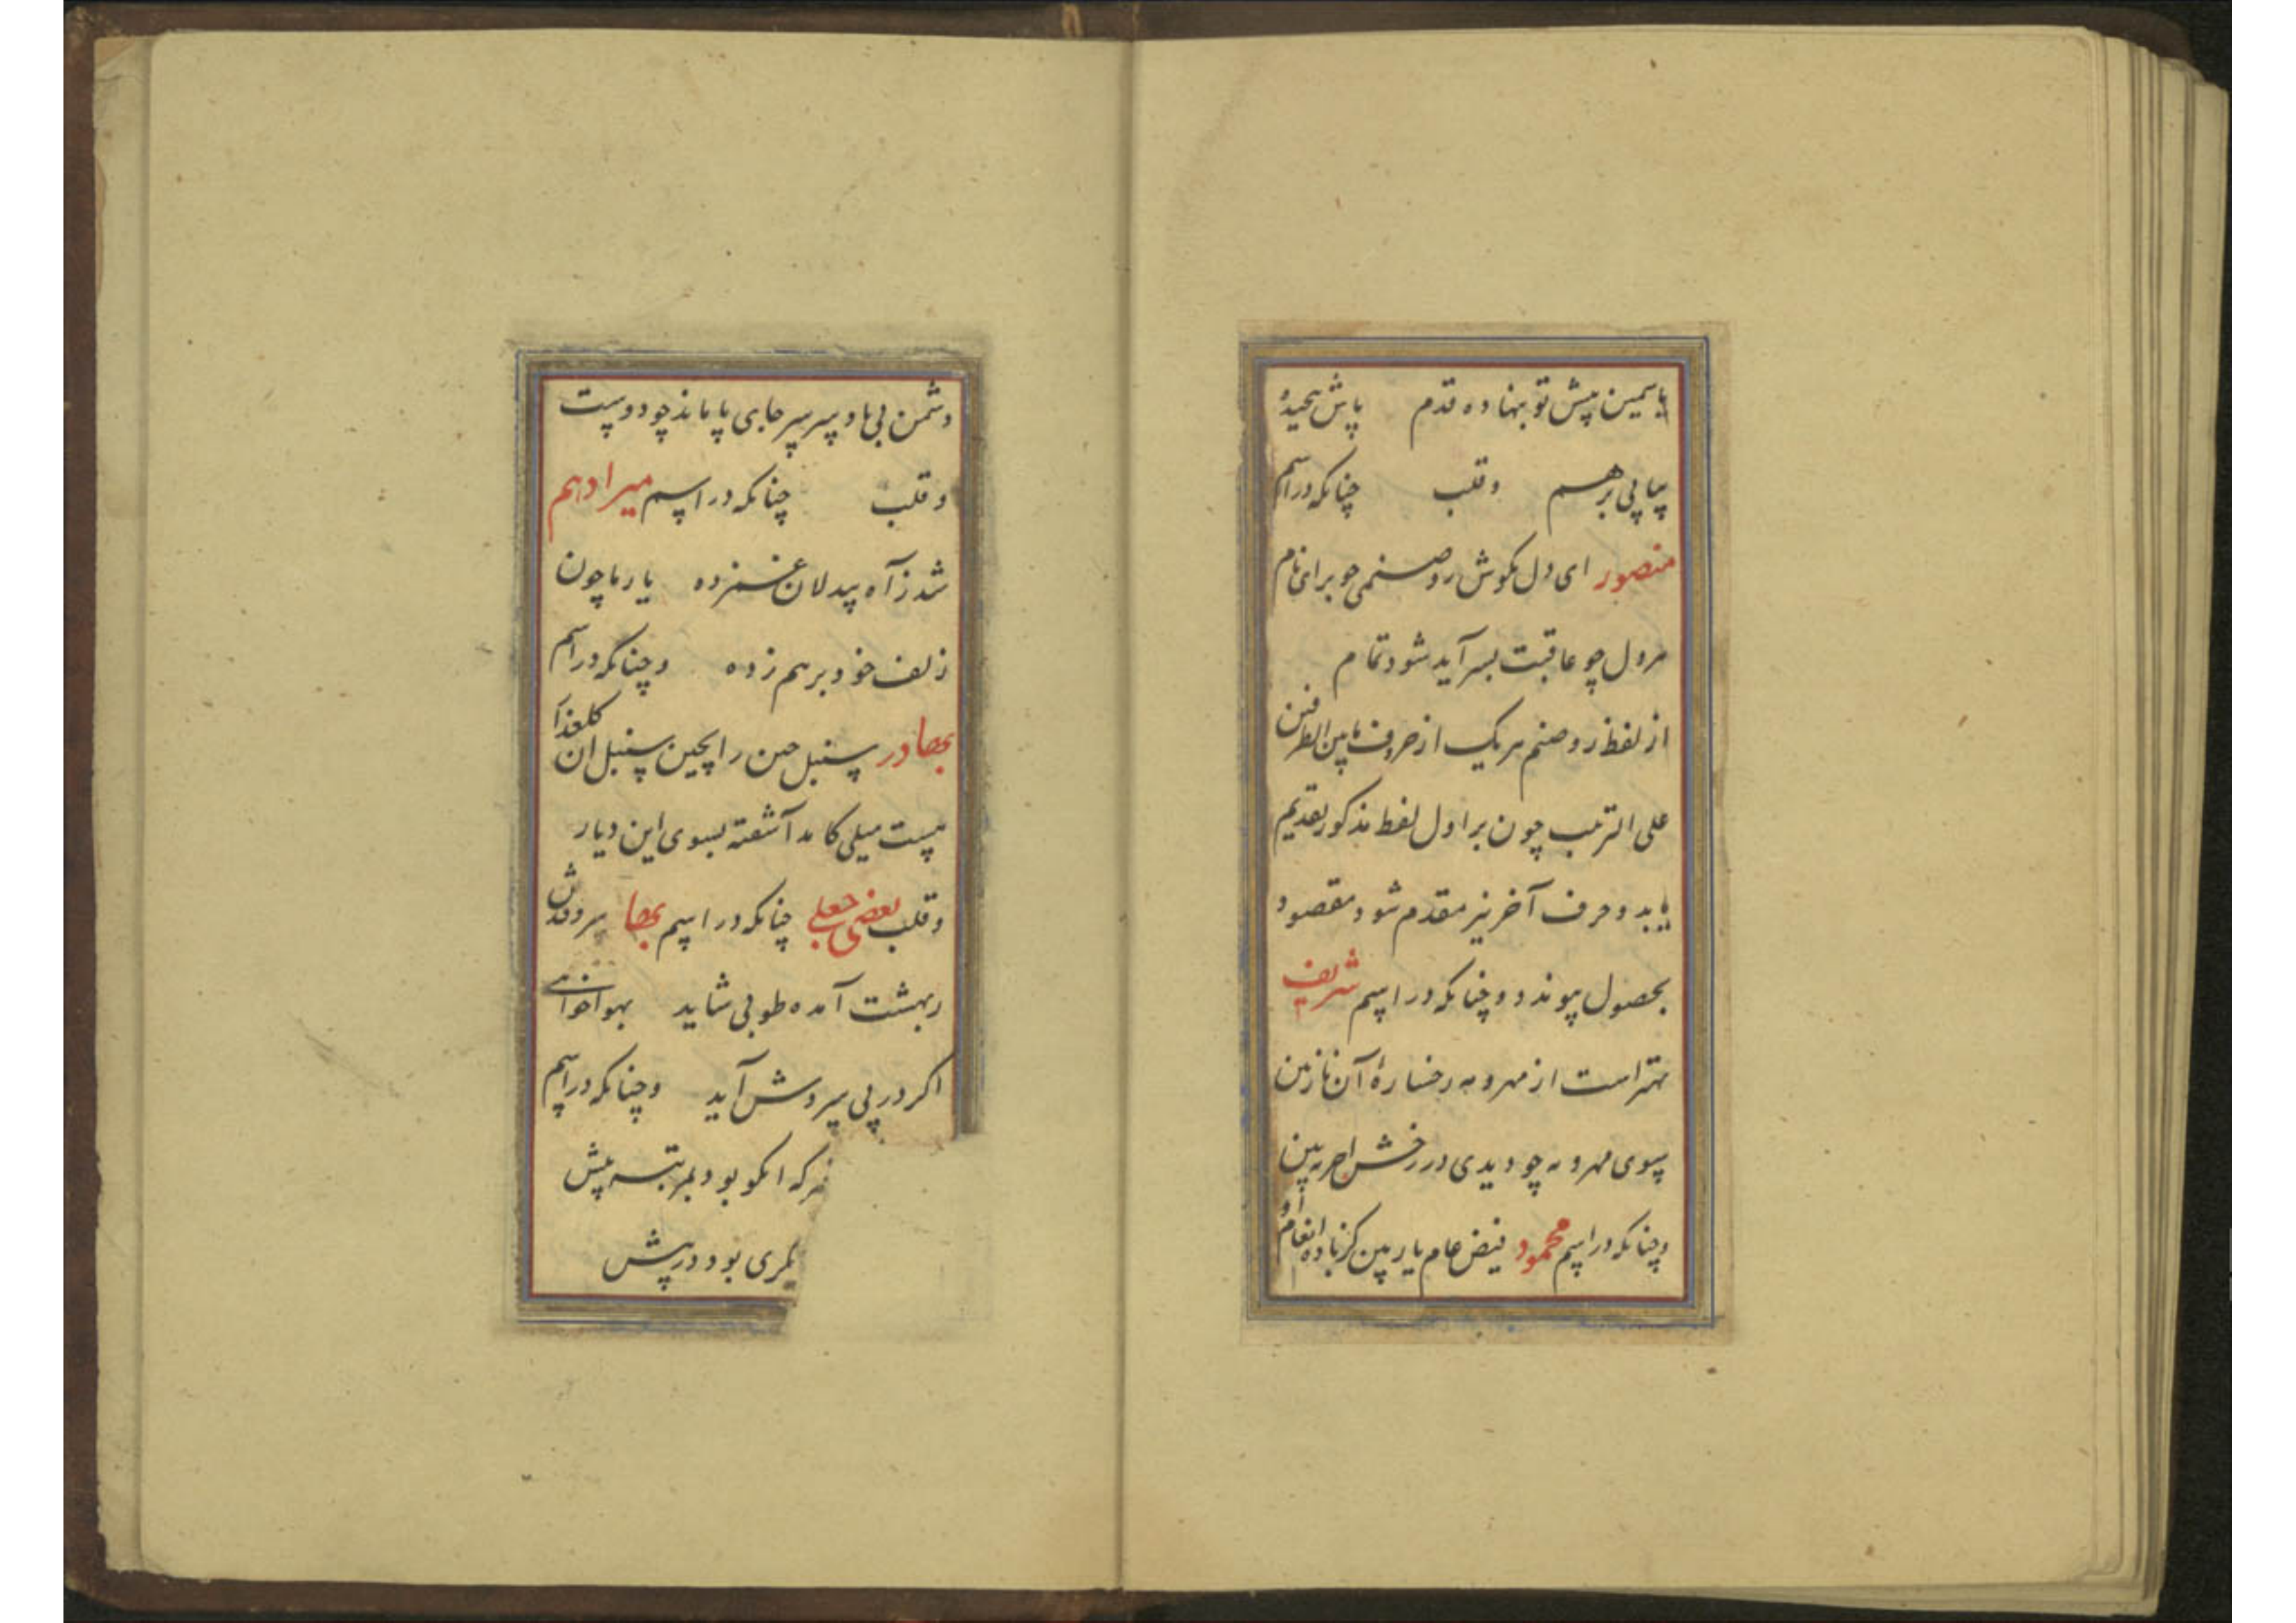 یاسمین پیش تو بنهاده قدم پاش پیچیده
پیاپی برهم وقلب چنانکه در اسم
منصور ای دل بکوش رو صنمی جو برای نام
هر دل چو عاقبت بسر آید شود تمام
از لفظ رو صنم هر یک از حروف مابین الطرفین
علی الترتیب چون بر اول لفظ مذکور تقدیم
یابد و حرف آخر نیز مقدم شود مقصود
بحصول پیوندد و چنانکه در اسم شریف
بهتر است از مهر و مه رخساره آن نازنین
سوی مهر و مه چو دیدی در رخش آخر ببین
وچنانکه در اسم محمود فیض عام یار بین کز باده انعام او
دشمن بی پا و سر سر جای پا ماند چو دوست
وقلب چنانکه در اسم میرادهم
شد ز آه بیدلان غمزده یار ما چون
زلف خود برهم زده وچنانکه در اسم
بهادر سنبل چین را بچین سنبل ان کلعذار
نیست میلی کامد آشفته بسوی این دیار
وقلب بعضی جعلی چنانکه در اسم بها سرو قدش
ز بهشت آمده طوبی شاید بهواخواهی
اکر در پی سروش آید وچنانکه در اسم
هر که انکو بود بمرتبه پیش
کمری بود در پیش